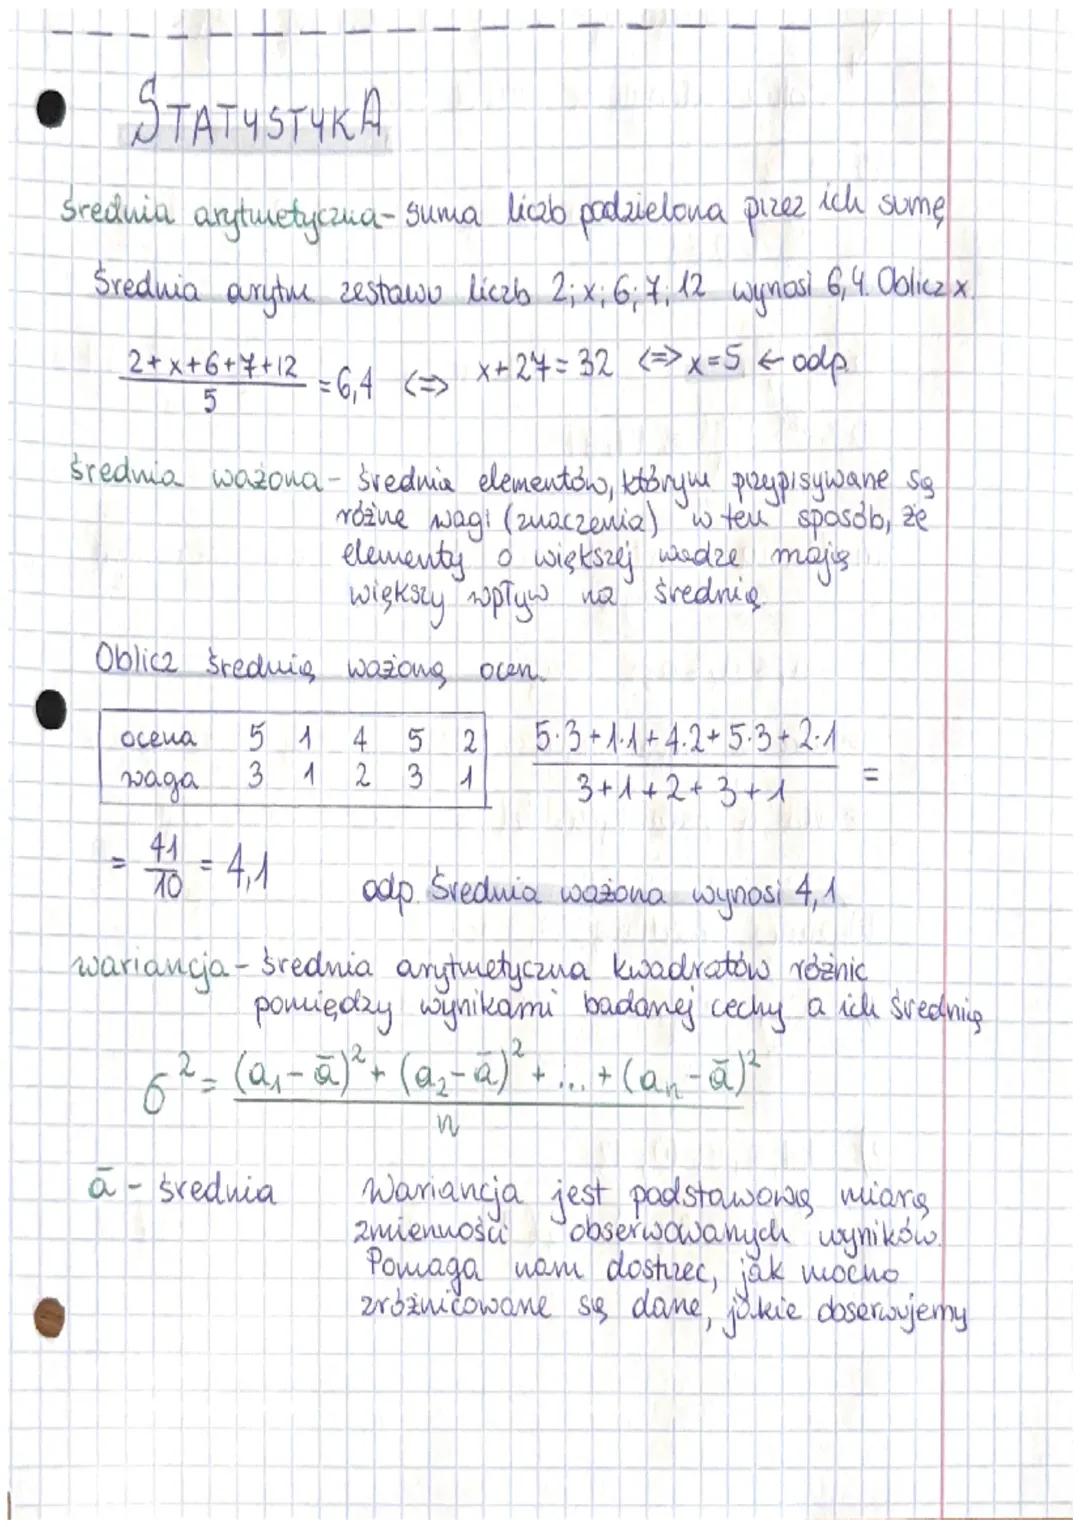 STATYSTYKA
średnia arytmetyczna - suma liczb podzielona przez ich sumę
Średnia arytm zestawu liczb 2; x; 6; 7; 12 wynosi 6,4. Oblicz x.
(2+x+6+7+12)/5 = 6,4 <=> x+27=32 <=> x=5 ← odp.
średnia ważona - średnia elementów, którym przypisywane są
różne wagi (znaczenia) w ten sposób, że
elementy o większej wadze mają
większy wpływ na średnią
Oblicz średnią ważoną ocen.
ocena 5 1 4 5 2
waga 3 1 2 3 1
(5·3+1·1+4·2+5·3+2·1)/(3+1+2+3+1) =
= 41/10 = 4,1
odp. Średnia ważona wynosi 4,1.
wariancja - średnia arytmetyczna kwadratów różnic
pomiędzy wynikami badanej cechy a ich średnią
σ² = ((a₁-ā)² + (a₂-ā)² + ... + (aₙ-ā)²)/n
ā - średnia
Wariancja jest podstawową miarą
zmienności obserwowanych wyników.
Pomaga nam dostrzec, jak mocno
zróżnicowane są dane, jakie obserwujemy